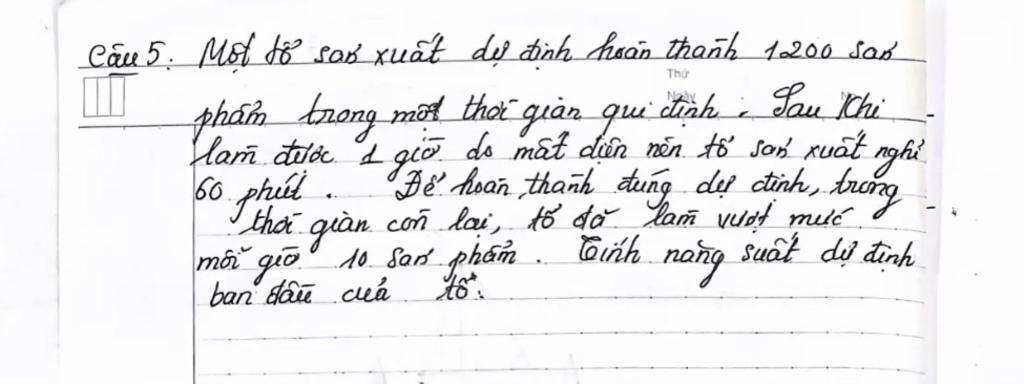 Câu 5. Một tổ sản xuất dự định hoàn thành 1200 sản
Thứ
Ngày
phẩm trong một thời gian qui định. Sau khi
làm được 1 giờ do mất điện nên tổ sản xuất nghỉ
60 phút. Để hoàn thành đúng dự định, trong
thời gian còn lại, tổ đã làm vượt mức
mỗi giờ 10 sản phẩm. Tính năng suất dự định
ban đầu của tổ.